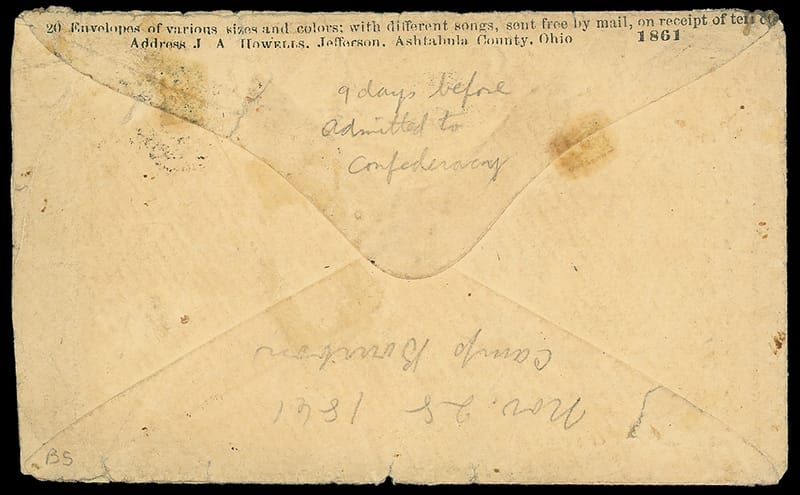 20 Envelopes of various sizes and colors; with different songs, sent free by mail, on receipt of ten cts
Address J. A. HOWELLS, Jefferson, Ashtabula County, Ohio
1861
9 days before
admitted to
Confederacy
Camp Bourbon
Nov. 28 1861
BS